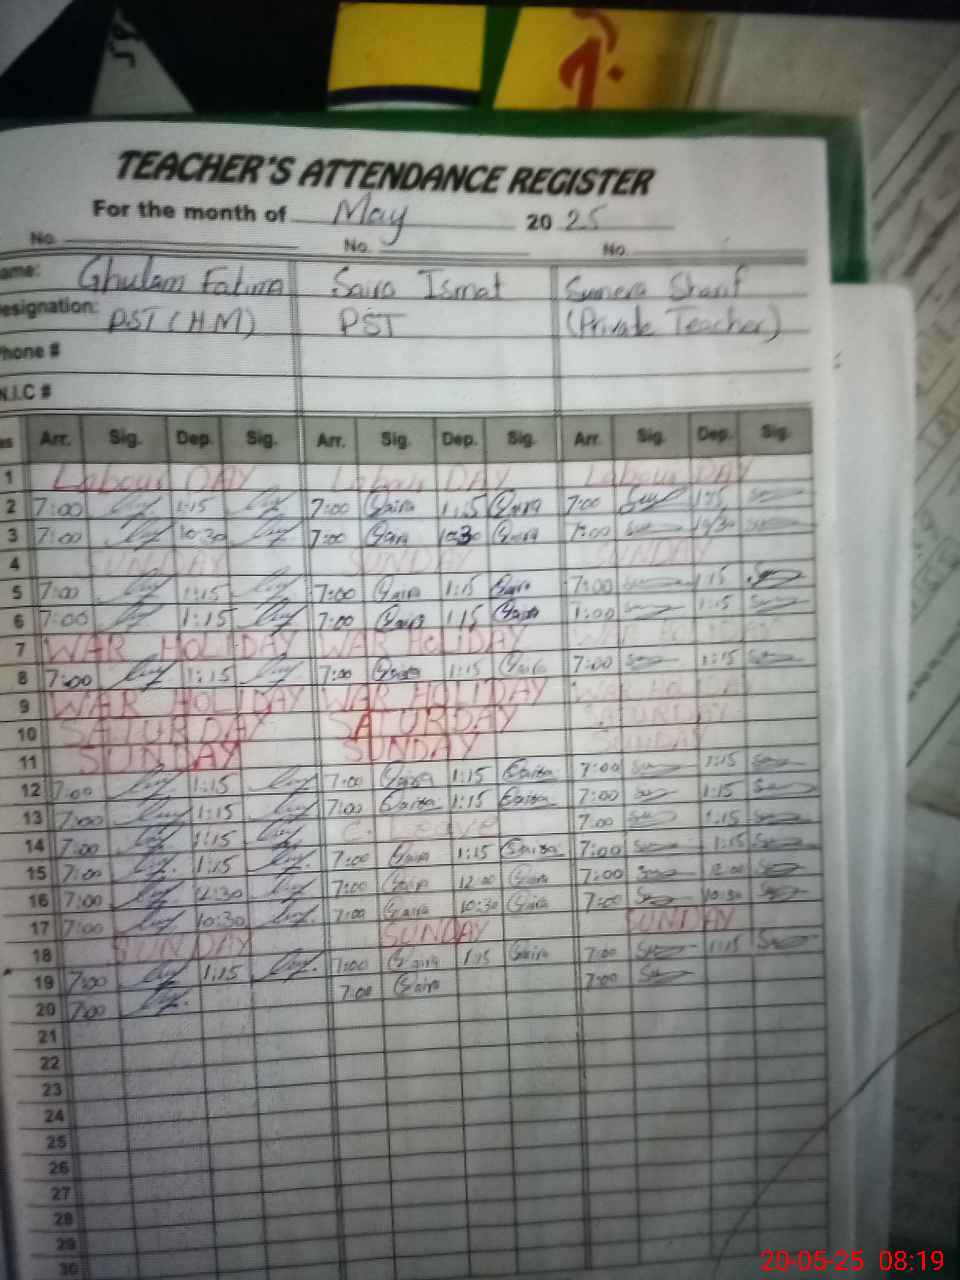 TEACHER'S ATTENDANCE REGISTER
For the month of May 20 25
No. No. No.
ame: Ghulam Fatima Saira Ismat Sumera Sharif
esignation: PST (H.M) PST (Private Teacher)
hone #
N.I.C #
es Arr. Sig. Dep. Sig. Arr. Sig. Dep. Sig. Arr. Sig. Dep. Sig.
1 Labour DAY Labour DAY Labour DAY
2 7:00 1:15 7:00 Saira 1:15 Saira 7:00 1:15
3 7:00 10:30 7:00 Saira 10:30 Saira 7:00 10:30
4 SUNDAY SUNDAY SUNDAY
5 7:00 1:15 7:00 Saira 1:15 Saira 7:00 1:15
6 7:00 1:15 7:00 Saira 1:15 Saira 1:15
7 WAR HOLIDAY WAR HOLIDAY WAR HOLIDAY
8 7:00 1:15 7:00 Saira 1:15 Saira 7:00 1:15
9 WAR HOLIDAY WAR HOLIDAY WAR HOLIDAY
10 SATURDAY SATURDAY SATURDAY
11 SUNDAY SUNDAY SUNDAY
12 7:00 1:15 7:00 Saira 1:15 Saira 7:00 1:15
13 7:00 1:15 7:00 Saira 1:15 Saira 7:00 1:15
14 7:00 1:15 C. Leave 7:00 1:15
15 7:00 1:15 7:00 Saira 1:15 Saira 7:00 1:15
16 7:00 12:30 7:00 Saira 12:00 Saira 7:00 12:00
17 7:00 10:30 7:00 Saira 10:30 Saira 7:00 10:30
18 SUNDAY SUNDAY SUNDAY
19 7:00 1:15 7:00 Saira 1:15 Saira 7:00 1:15
20 7:00 7:00 Saira 7:00
21
22
23
24
25
26
27
28
29
30
20-05-25 08:19